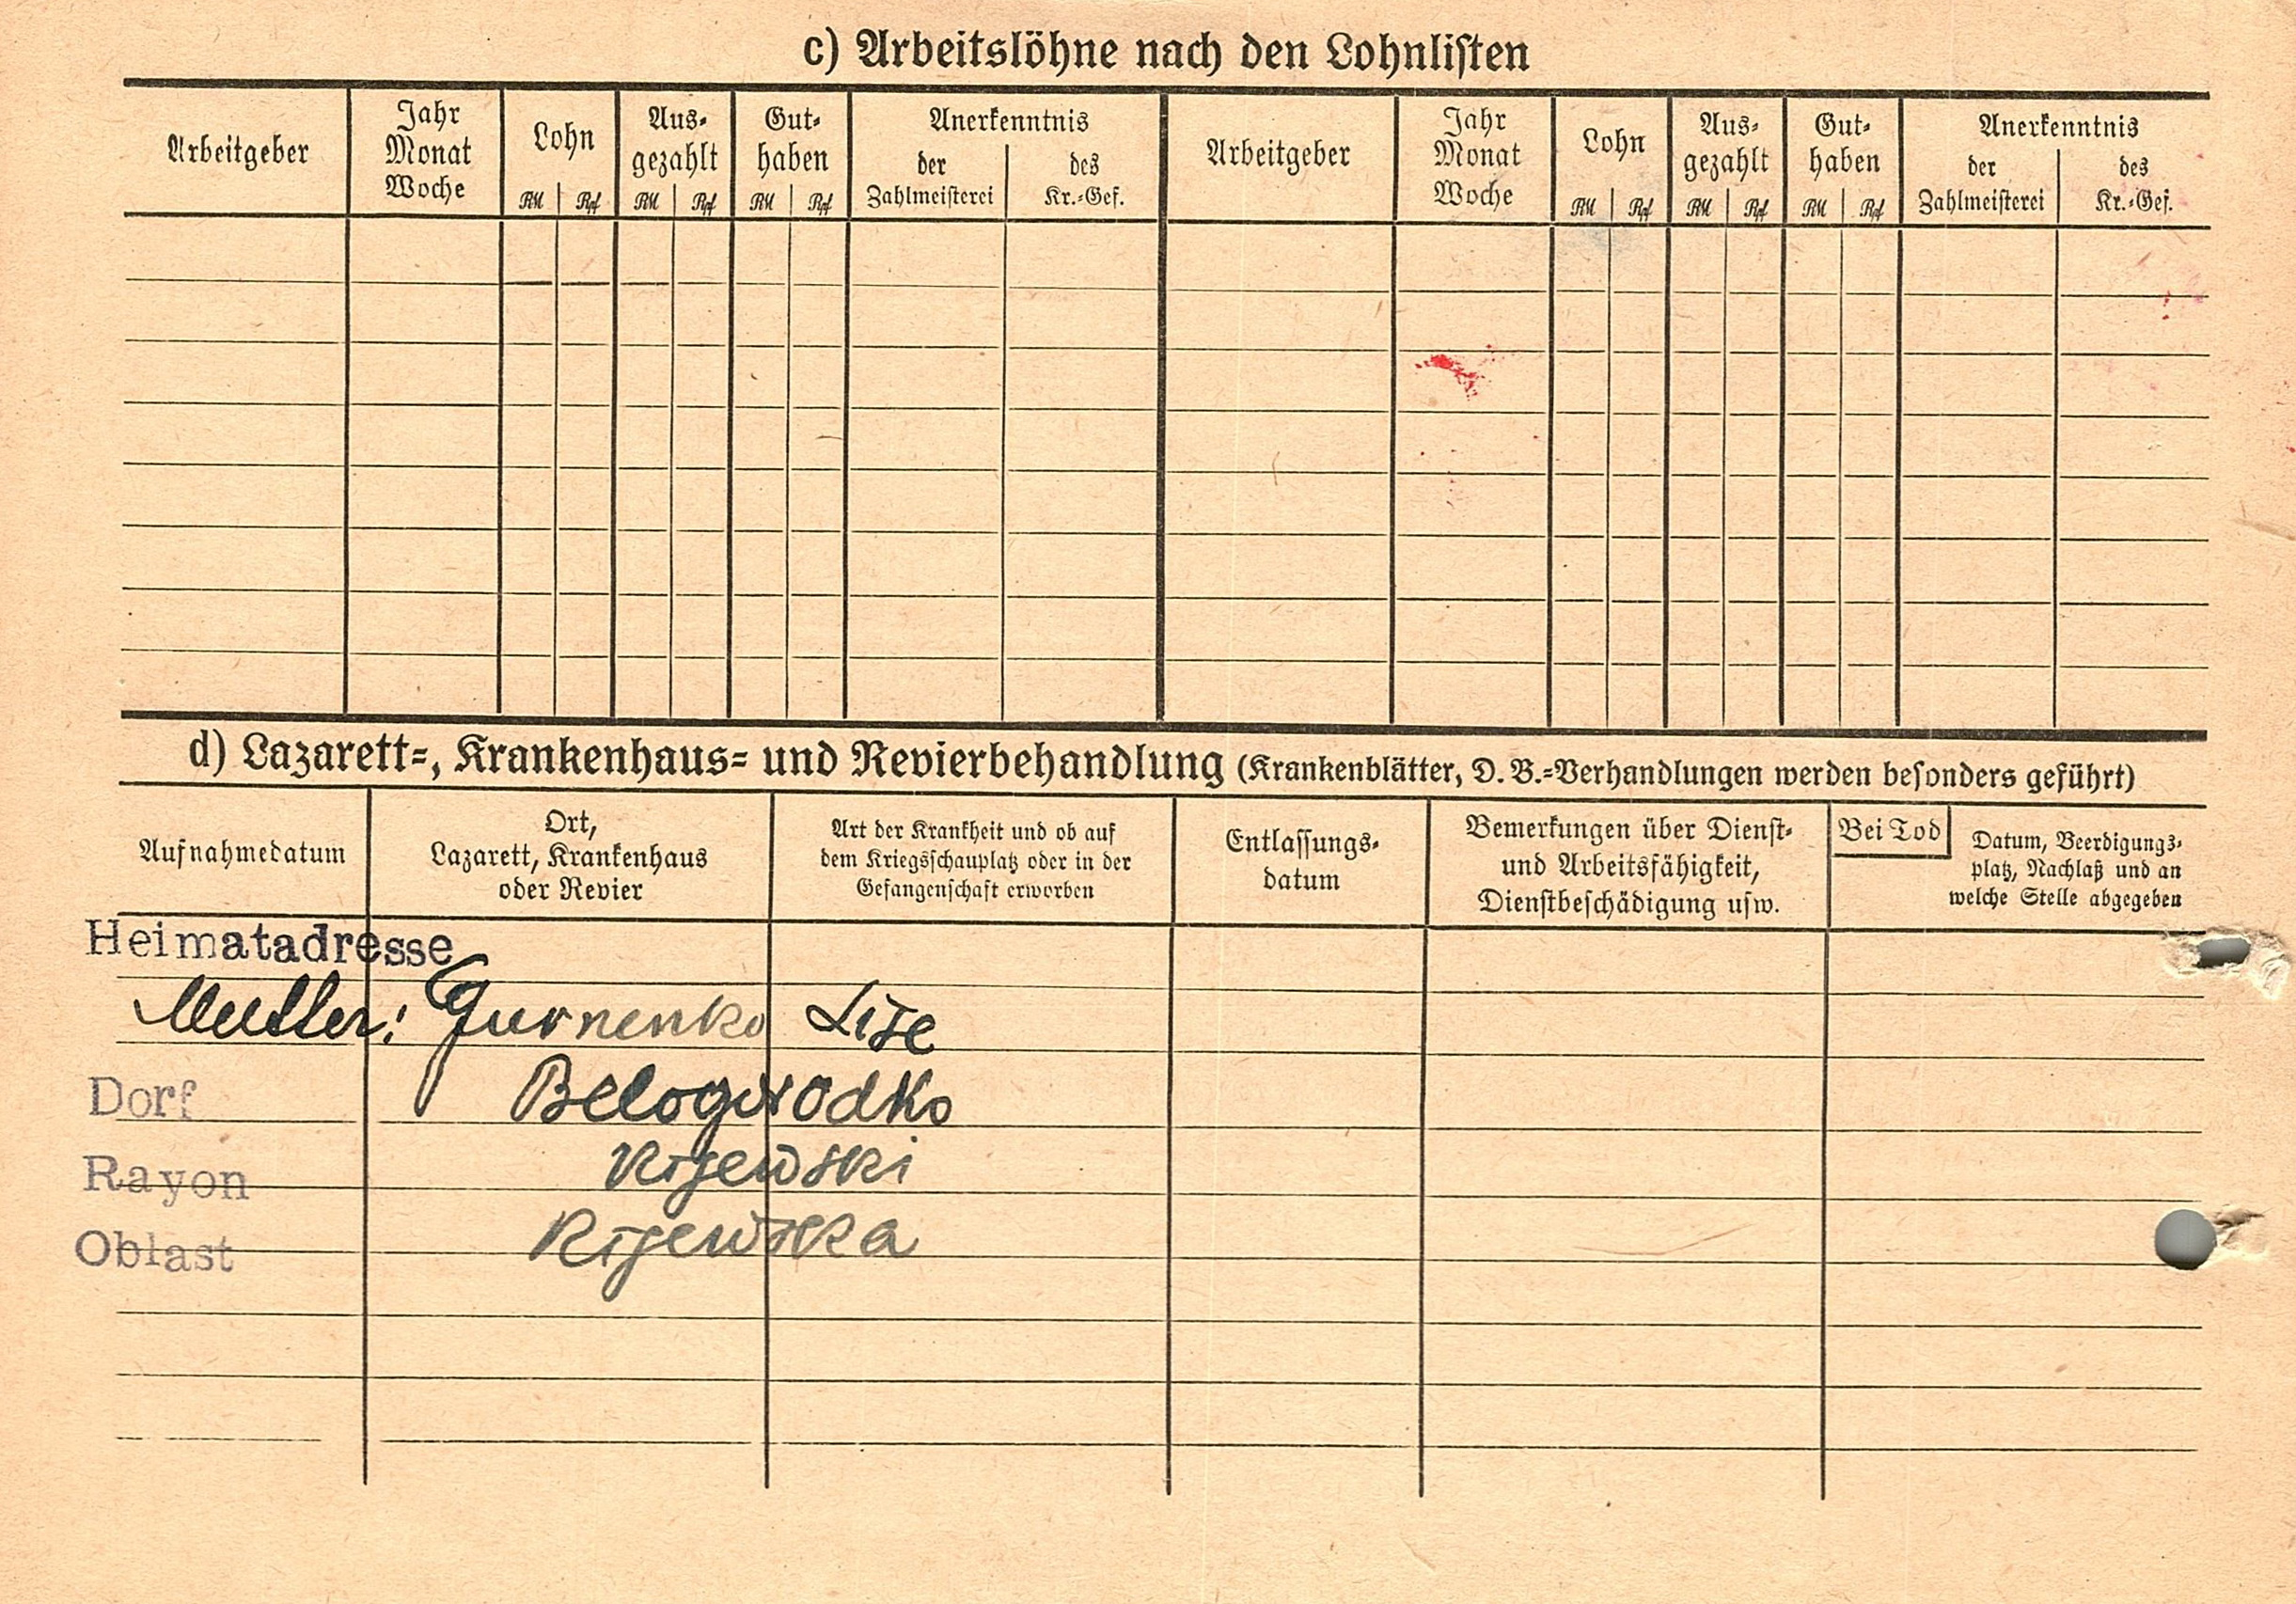 c) Arbeitslöhne nach den Lohnlisten
Arbeitgeber
Jahr
Monat
Woche
Lohn
RM Rpf
Aus-
gezahlt
RM Rpf
Gut-
haben
RM Rpf
Anerkenntnis
der
Zahlmeisterei
des
Kr.-Gef.
Arbeitgeber
Jahr
Monat
Woche
Lohn
RM Rpf
Aus-
gezahlt
RM Rpf
Gut-
haben
RM Rpf
Anerkenntnis
der
Zahlmeisterei
des
Kr.-Gef.
d) Lazarett-, Krankenhaus- und Revierbehandlung (Krankenblätter, D. B.-Verhandlungen werden besonders geführt)
Aufnahmedatum
Ort,
Lazarett, Krankenhaus
oder Revier
Art der Krankheit und ob auf
dem Kriegsschauplatz oder in der
Gefangenschaft erworben
Entlassungs-
datum
Bemerkungen über Dienst-
und Arbeitsfähigkeit,
Dienstbeschädigung usw.
Bei Tod
Datum, Beerdigungs-
platz, Nachlaß und an
welche Stelle abgegeben
Heimatadresse
Mutter: Gurnenko Lise
Dorf Belogorodko
Rayon Kijewski
Oblast Kijewska